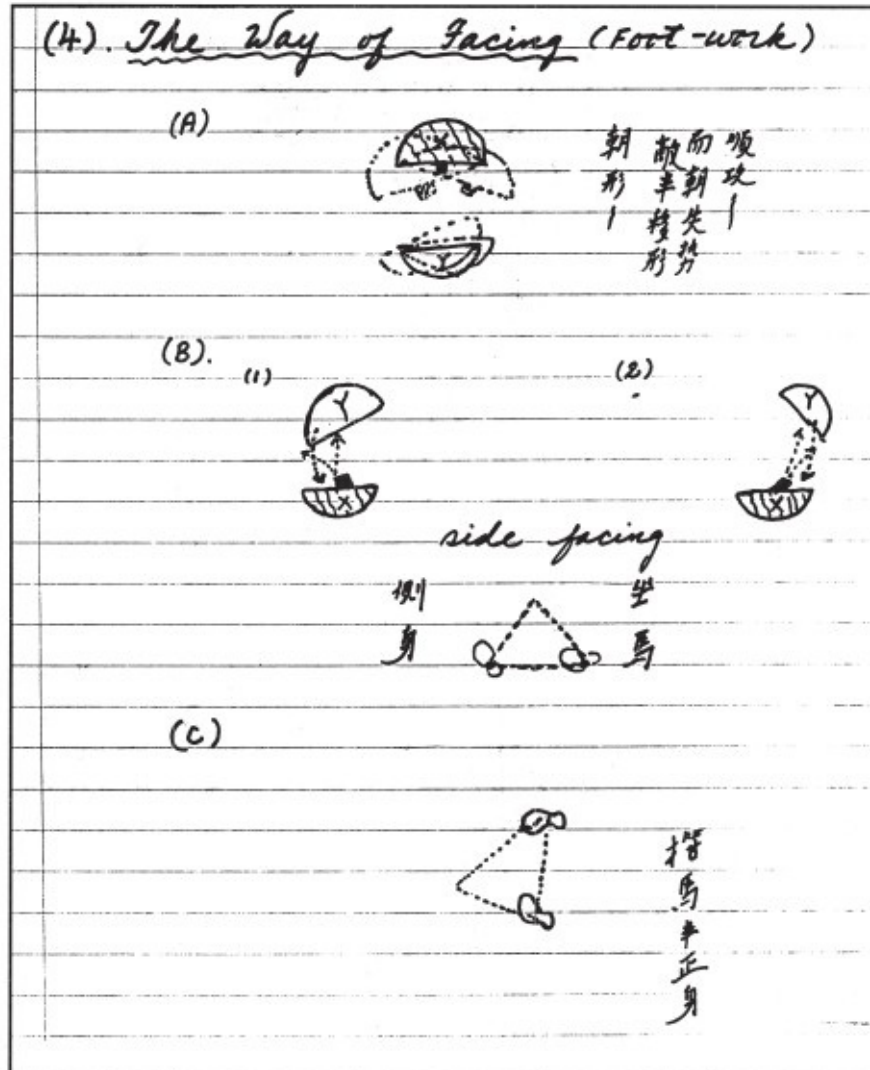 (4). The Way of Facing (Foot-work)
(A)
X
Y
順攻—
而朝失勢
敵半移形
朝形—
(B).
(1)
(2)
Y
X
Y
X
side facing
側身
坐馬
(C)
馬半正身